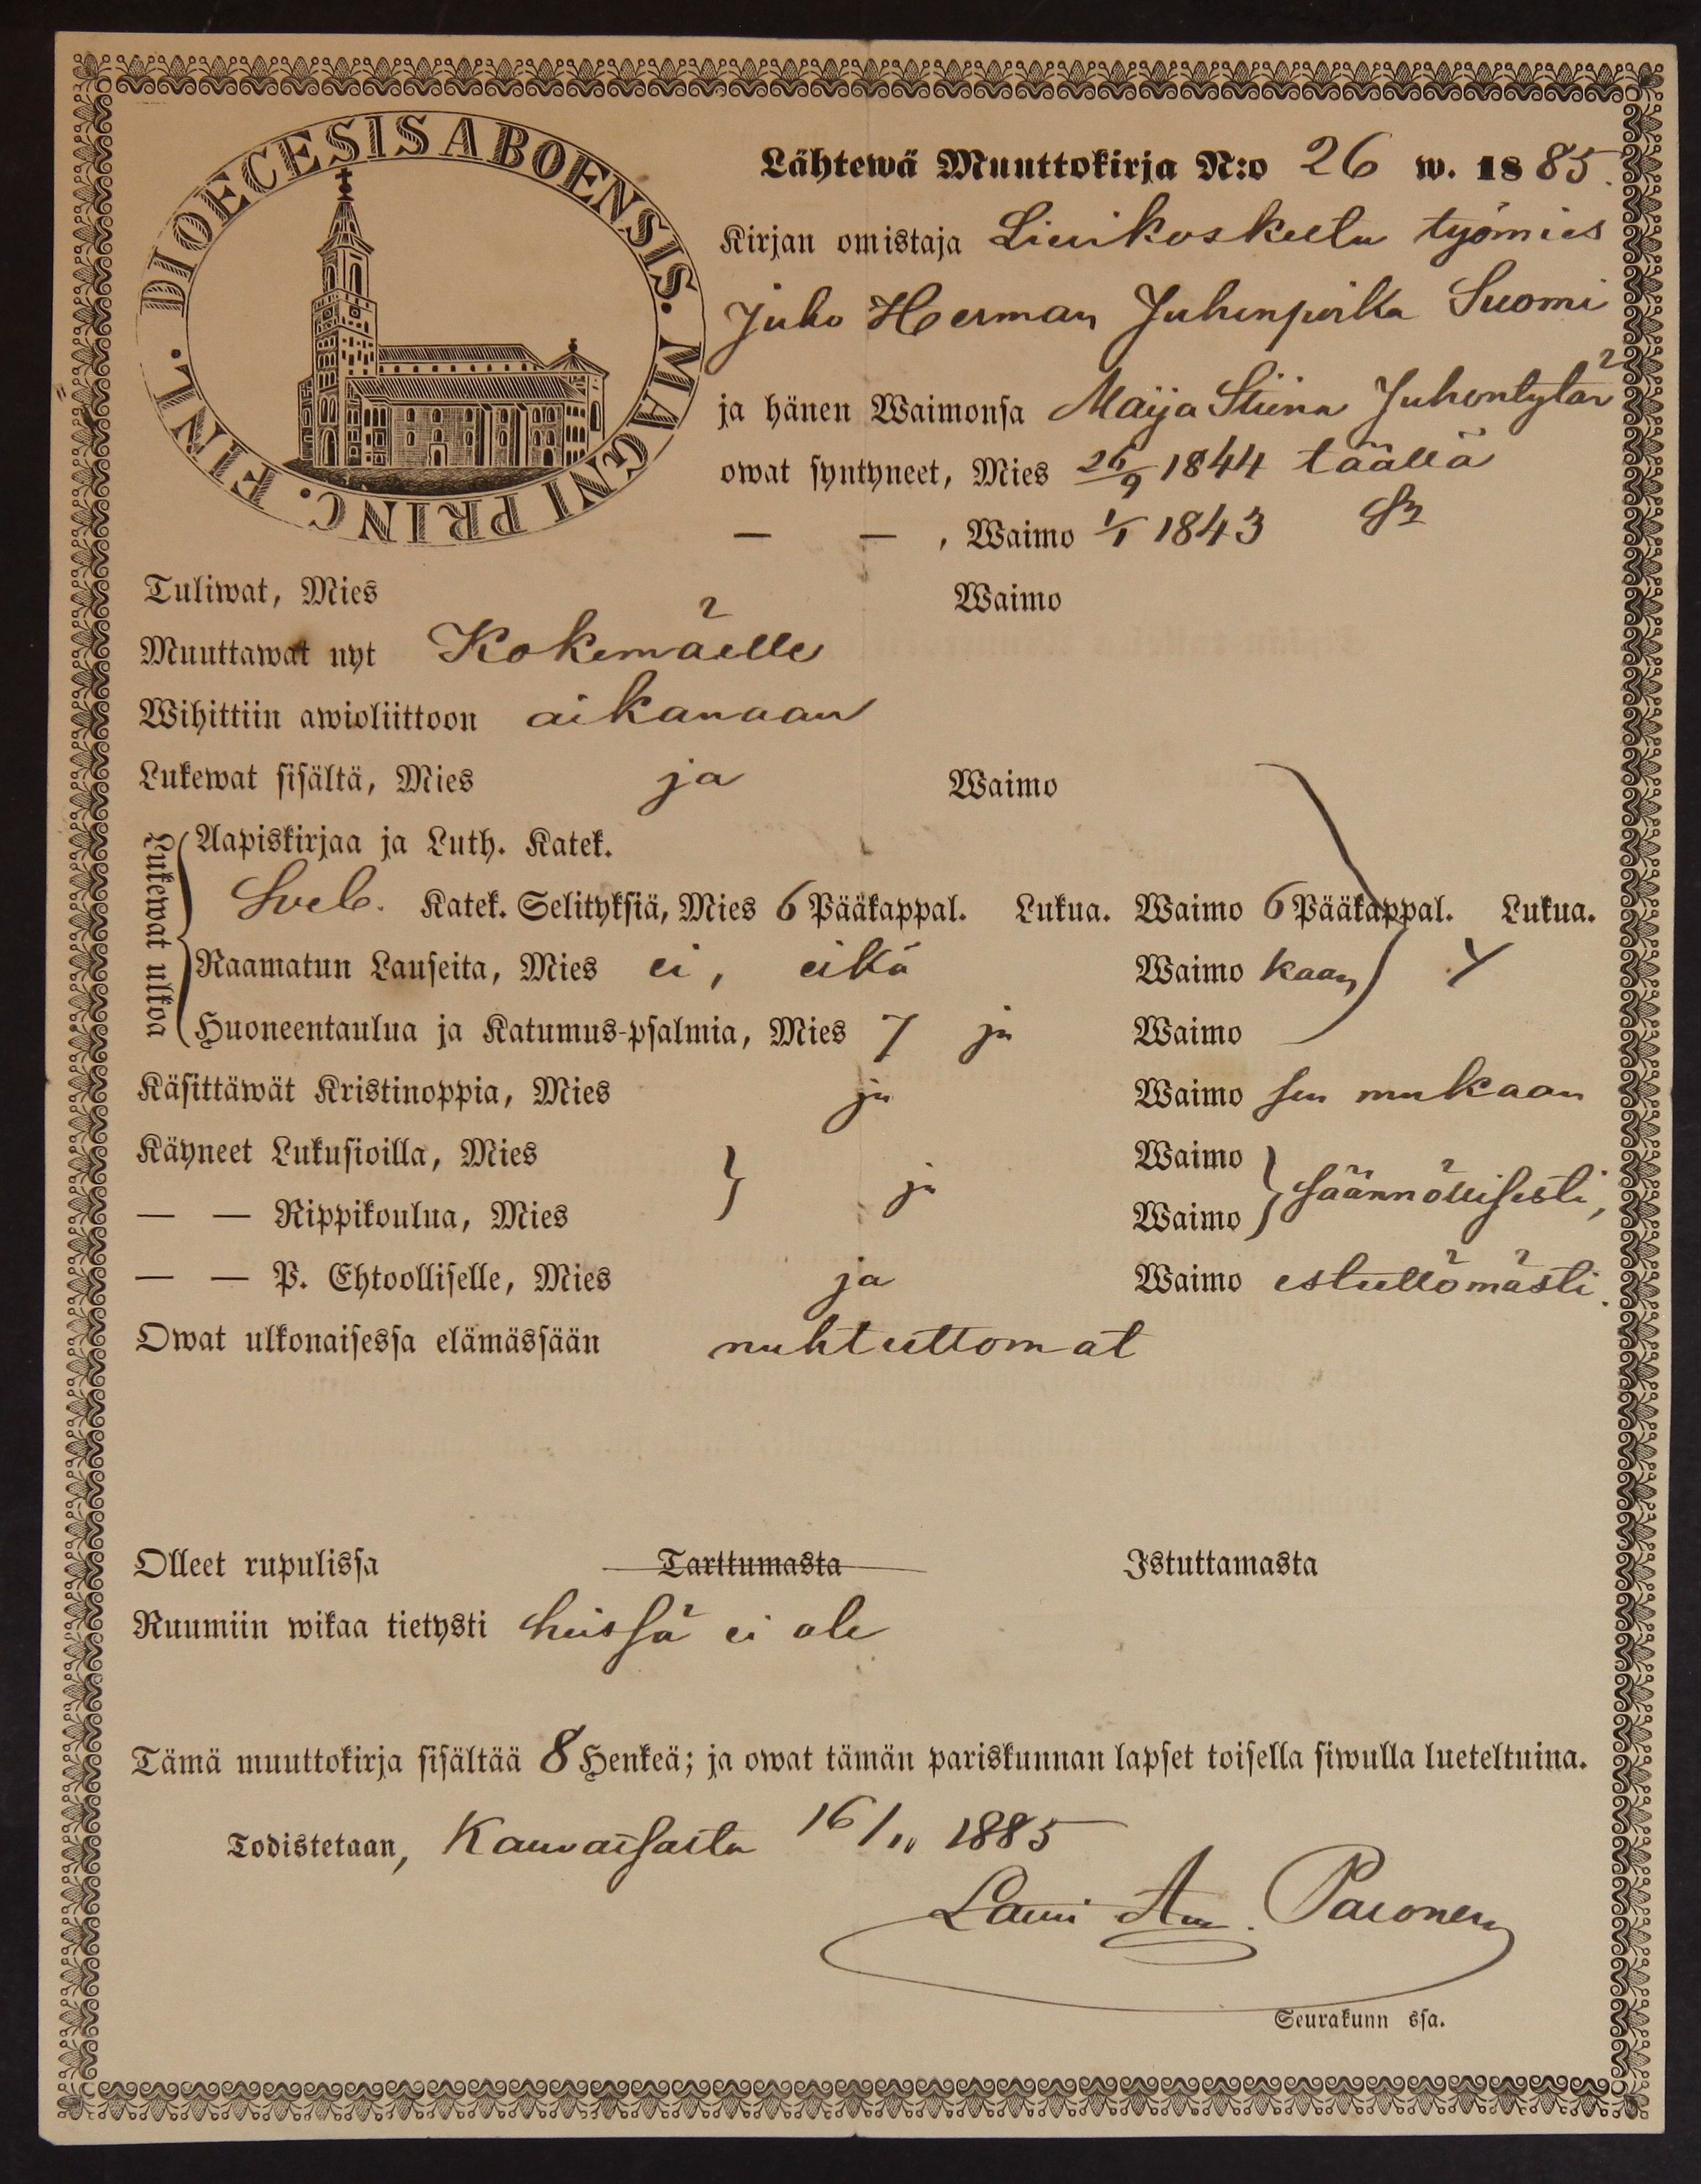 DIOECESIS ABOENSIS. MAGNI PRINC. FINL.
Lähtewä Muuttokirja N:o 26 w. 1885.
Kirjan omistaja työmies
Juho Herman Juhonpoika Suomi
ja hänen Waimonsa Maija Stiina Juhontytär
owat syntyneet, Mies 26/9 1844 täällä
— — , Waimo 1/1 1843
Tuliwat, Mies Waimo
Muuttawat nyt Kokemäelle
Wihittiin awioliittoon aikanaan
Lukewat sisältä, Mies ja Waimo
Lukewat ulkoa
Aapiskirjaa ja Luth. Katek.
Sveb. Katek. Selityksiä, Mies 6 Pääkappal. Lukua. Waimo 6 Pääkappal. Lukua.
Raamatun Lauseita, Mies ei, eikä Waimo kaan
Huoneentaulua ja Katumus-psalmia, Mies 7 ja Waimo
Käsittäwät Kristinoppia, Mies ja Waimo sen mukaan
Käyneet Lukusioilla, Mies ja Waimo säännöllisesti,
— — Rippikoulua, Mies Waimo
— — P. Ehtoolliselle, Mies ja Waimo esteettömästi.
Owat ulkonaisessa elämässään nuhteettomat
Olleet rupulissa Tarttumasta Istuttamasta
Ruumiin wikaa tietysti heissä ei ole
Tämä muuttokirja sisältää 8 Henkeä; ja owat tämän pariskunnan lapset toisella siwulla lueteltuina.
Todistetaan, Kauvatsasta 16/11 1885
Lauri Paronen
Seurakunn ssa.